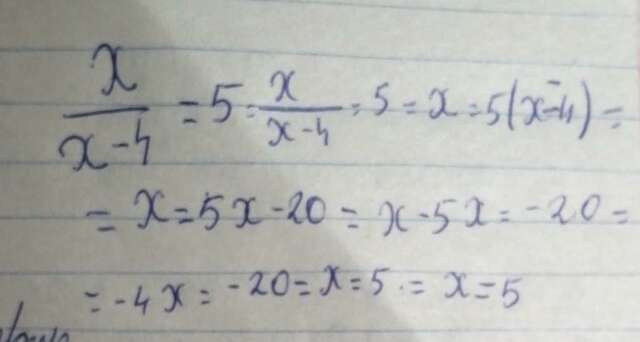 x/(x-4) = 5 = x/(x-4) = 5 = x = 5(x-4) =
= x = 5x-20 = x-5x = -20 =
= -4x = -20 = x = 5 = x = 5